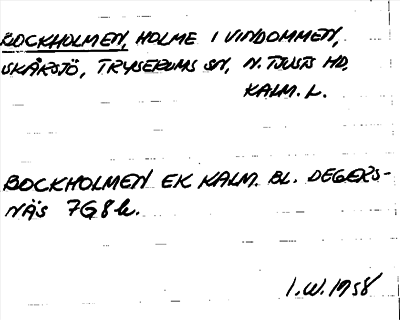 BOCKHOLMEN, HOLME I VINDOMMEN,
SKÅRSJÖ, TRYSERUMS SN, N. TJUSTS HD,
KALM. L.
BOCKHOLMEN EK KALM. BL. DEGERS-
NÄS 7G8h.
I.W. 1958